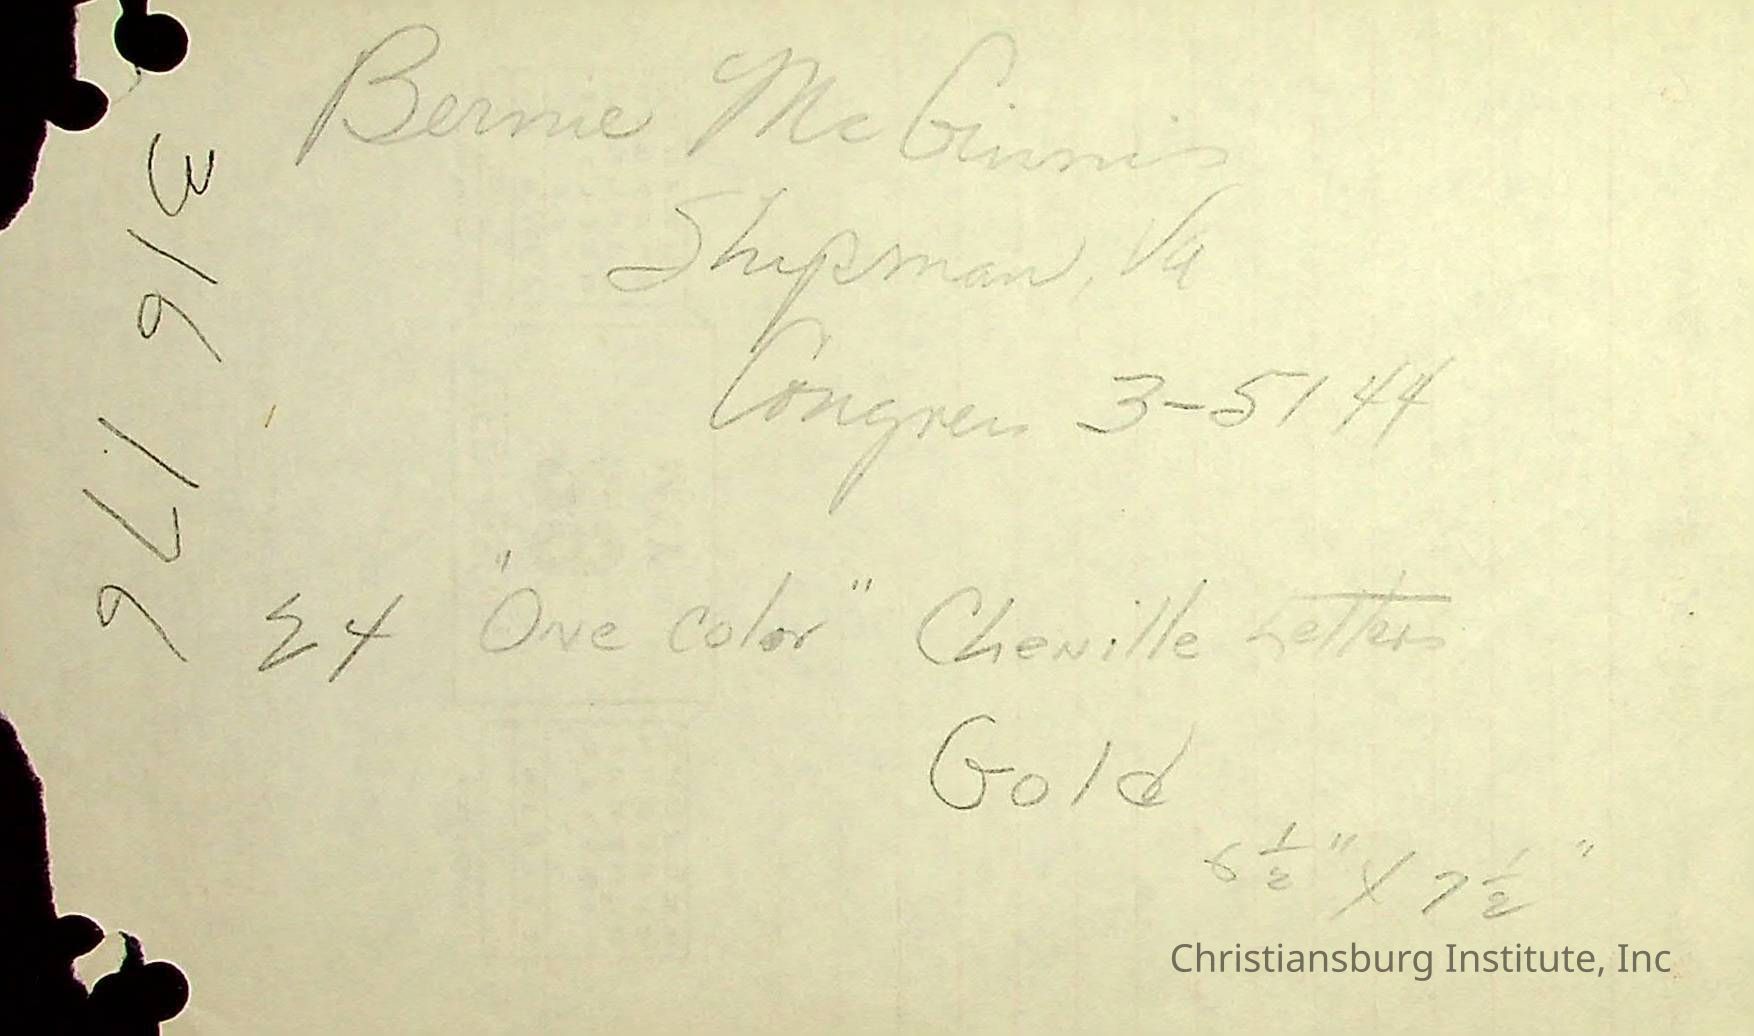 Bernie McGinnis
Shipman, Va
Congress 3-5144
316 176
24 "One color" Chenille Letters
Gold
6 1/2" X 7 1/2"
Christiansburg Institute, Inc